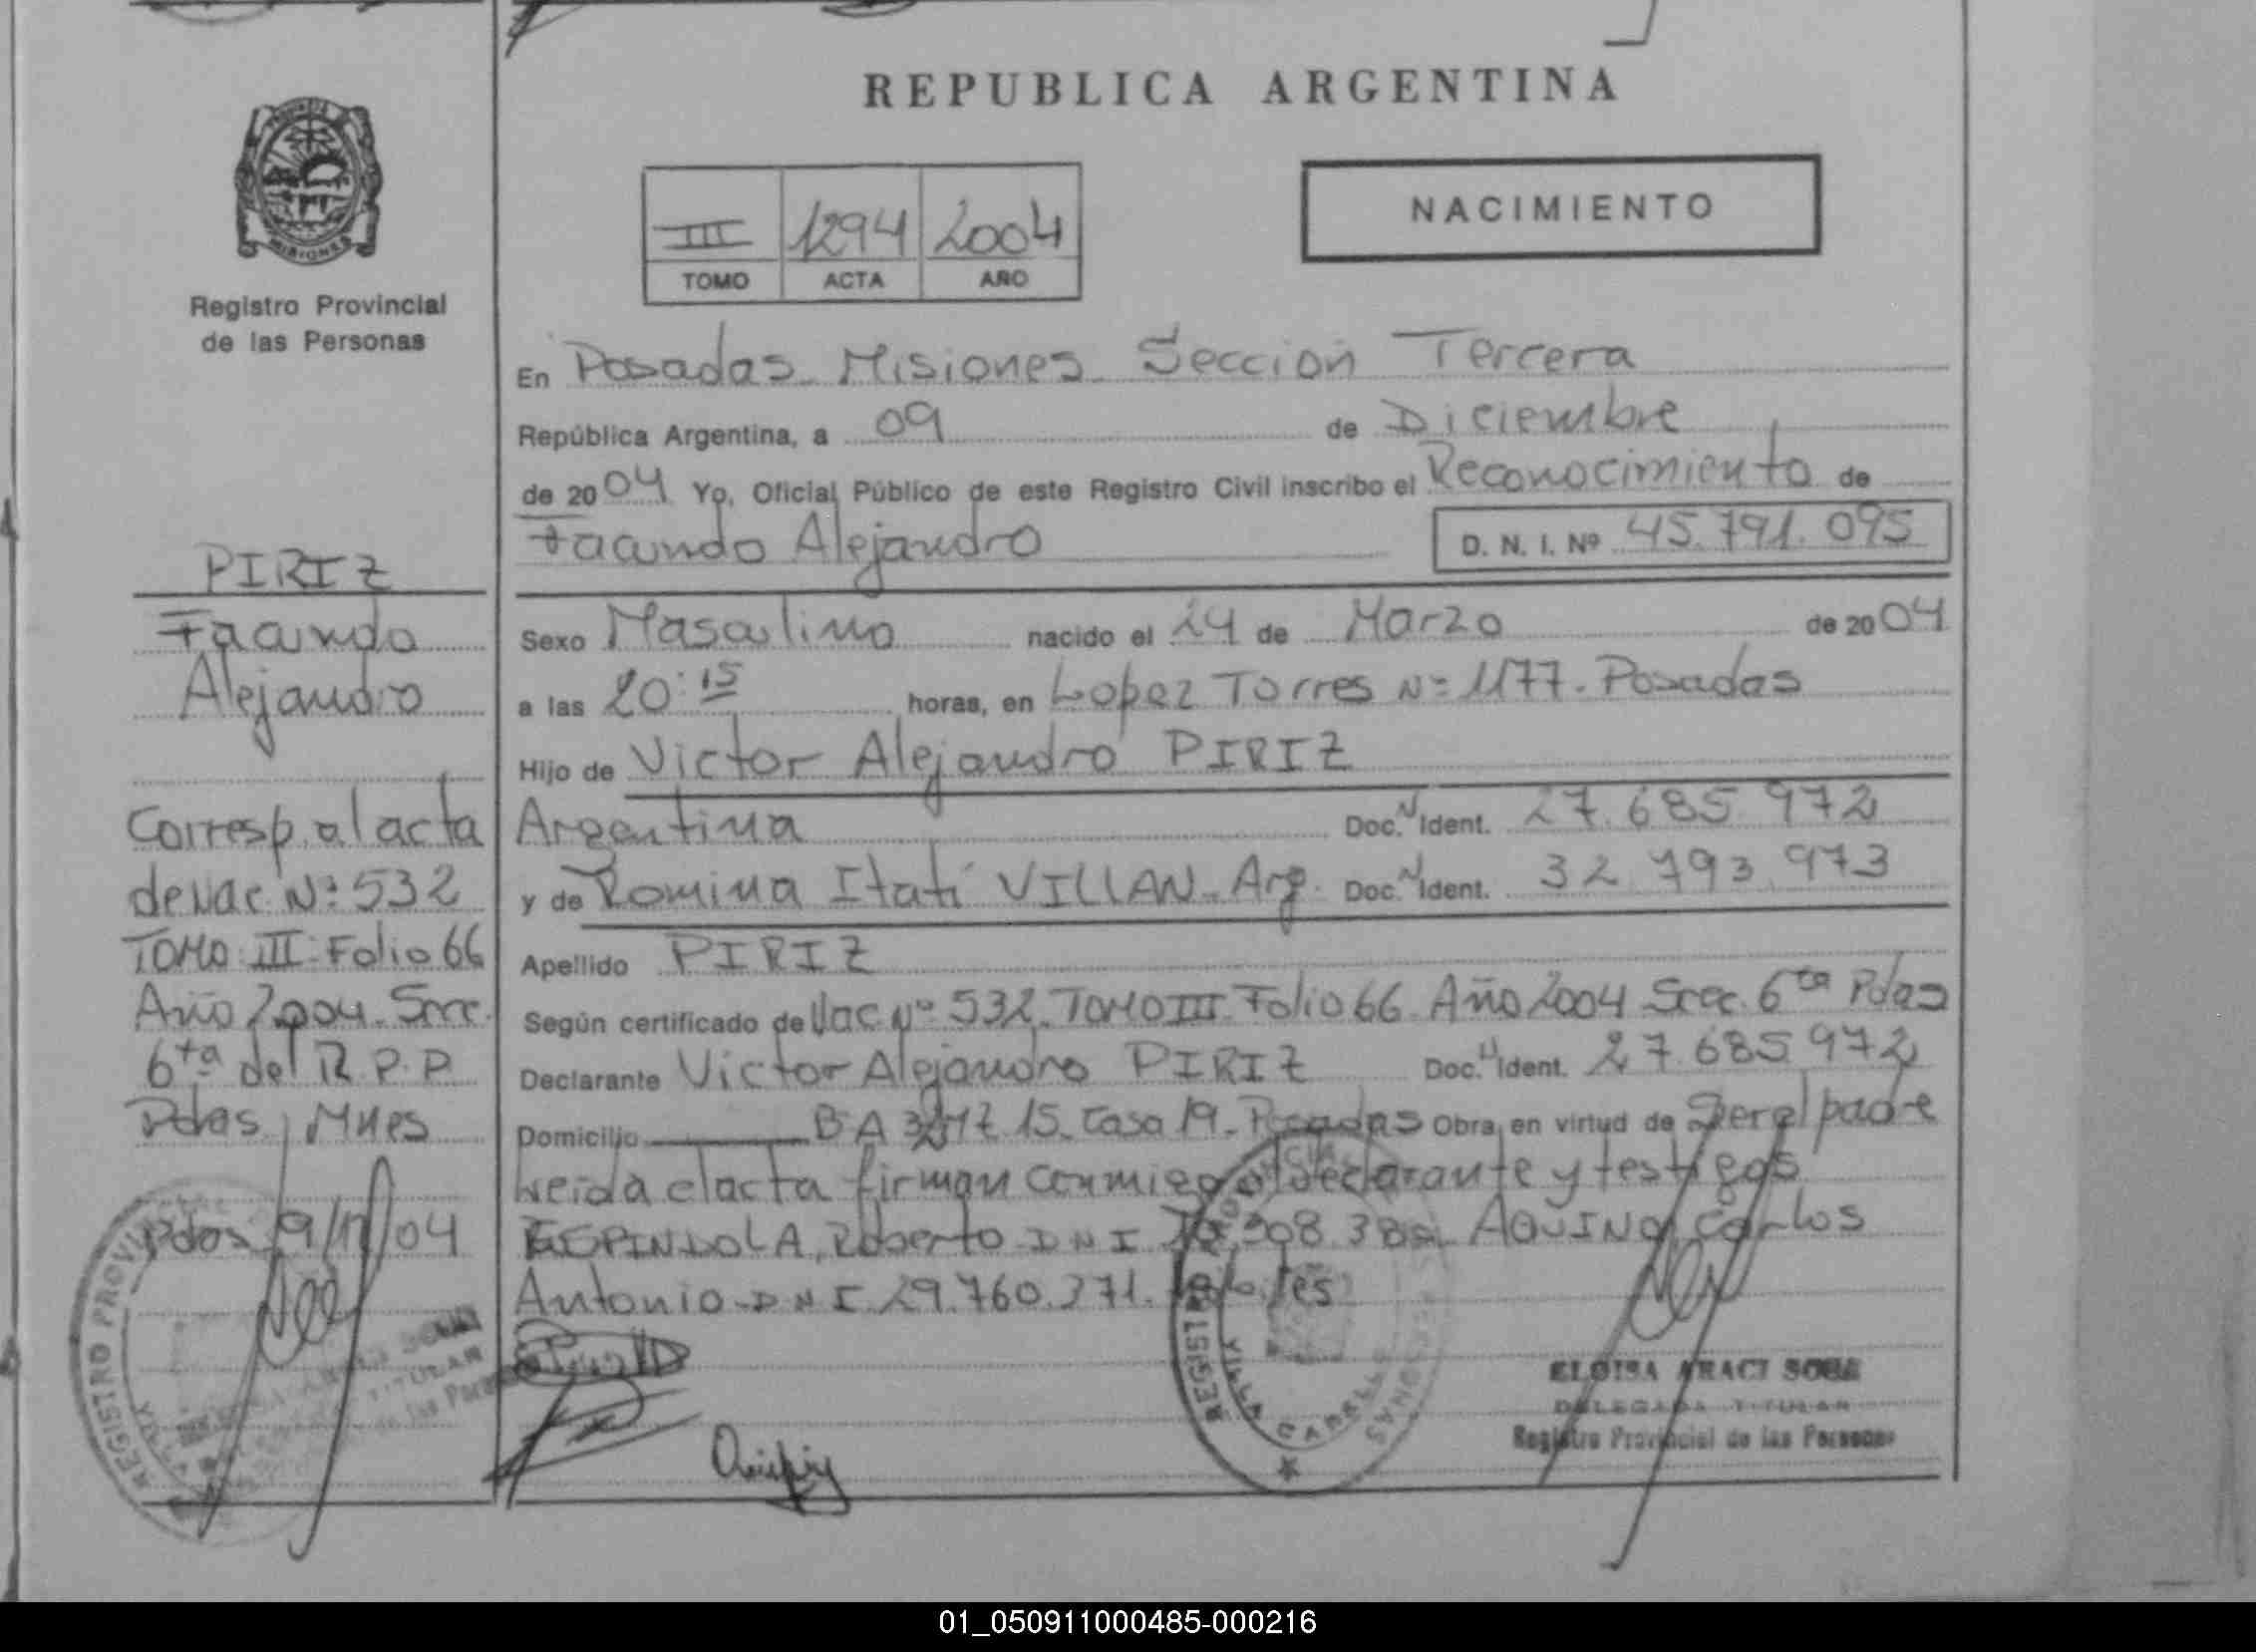 REPUBLICA ARGENTINA
NACIMIENTO
III 1294 2004
TOMO ACTA AÑO
Registro Provincial
de las Personas
En Posadas Misiones Sección Tercera
República Argentina, a 09 de Diciembre
de 2004 Yo, Oficial Público de este Registro Civil inscribo el Reconocimiento de
Facundo Alejandro D. N. I. Nº 45.791.095
PIRIZ
Facundo
Alejandro
Sexo Masculino nacido el 24 de Marzo de 2004
a las 20:15 horas, en Lopez Torres Nº 1177. Posadas
Hijo de Victor Alejandro PIRIZ
Argentina Doc. N Ident. 27.685.972
y de Romina Itatí VILLAN - Arg. Doc. N Ident. 32.793.973
Apellido PIRIZ
Según certificado de Nac Nº 532 TOMO III Folio 66 Año 2004 Secc. 6ta Pdas
Declarante Victor Alejandro PIRIZ Doc. N Ident. 27.685.972
Domicilio Casa 19 - Posadas Obra en virtud de Ser el padre
Leida el acta firman conmigo el declarante y testigos
ESPINDOLA, Roberto DNI AQUINO, Carlos
Antonio DNI 29.760.371.
Corresp. al acta
de Nac. Nº 532
TOMO III Folio 66
Año 2004. Secc.
6ta del R.P.P.
Pdas, Mnes
Pdas 9/12/04
REGISTRO PROVINCIAL
VILLA CABELLO
MISIONES
ELOISA ARACI SOSA
DELEGADA TITULAR
Registro Provincial de las Personas
01_050911000485-000216